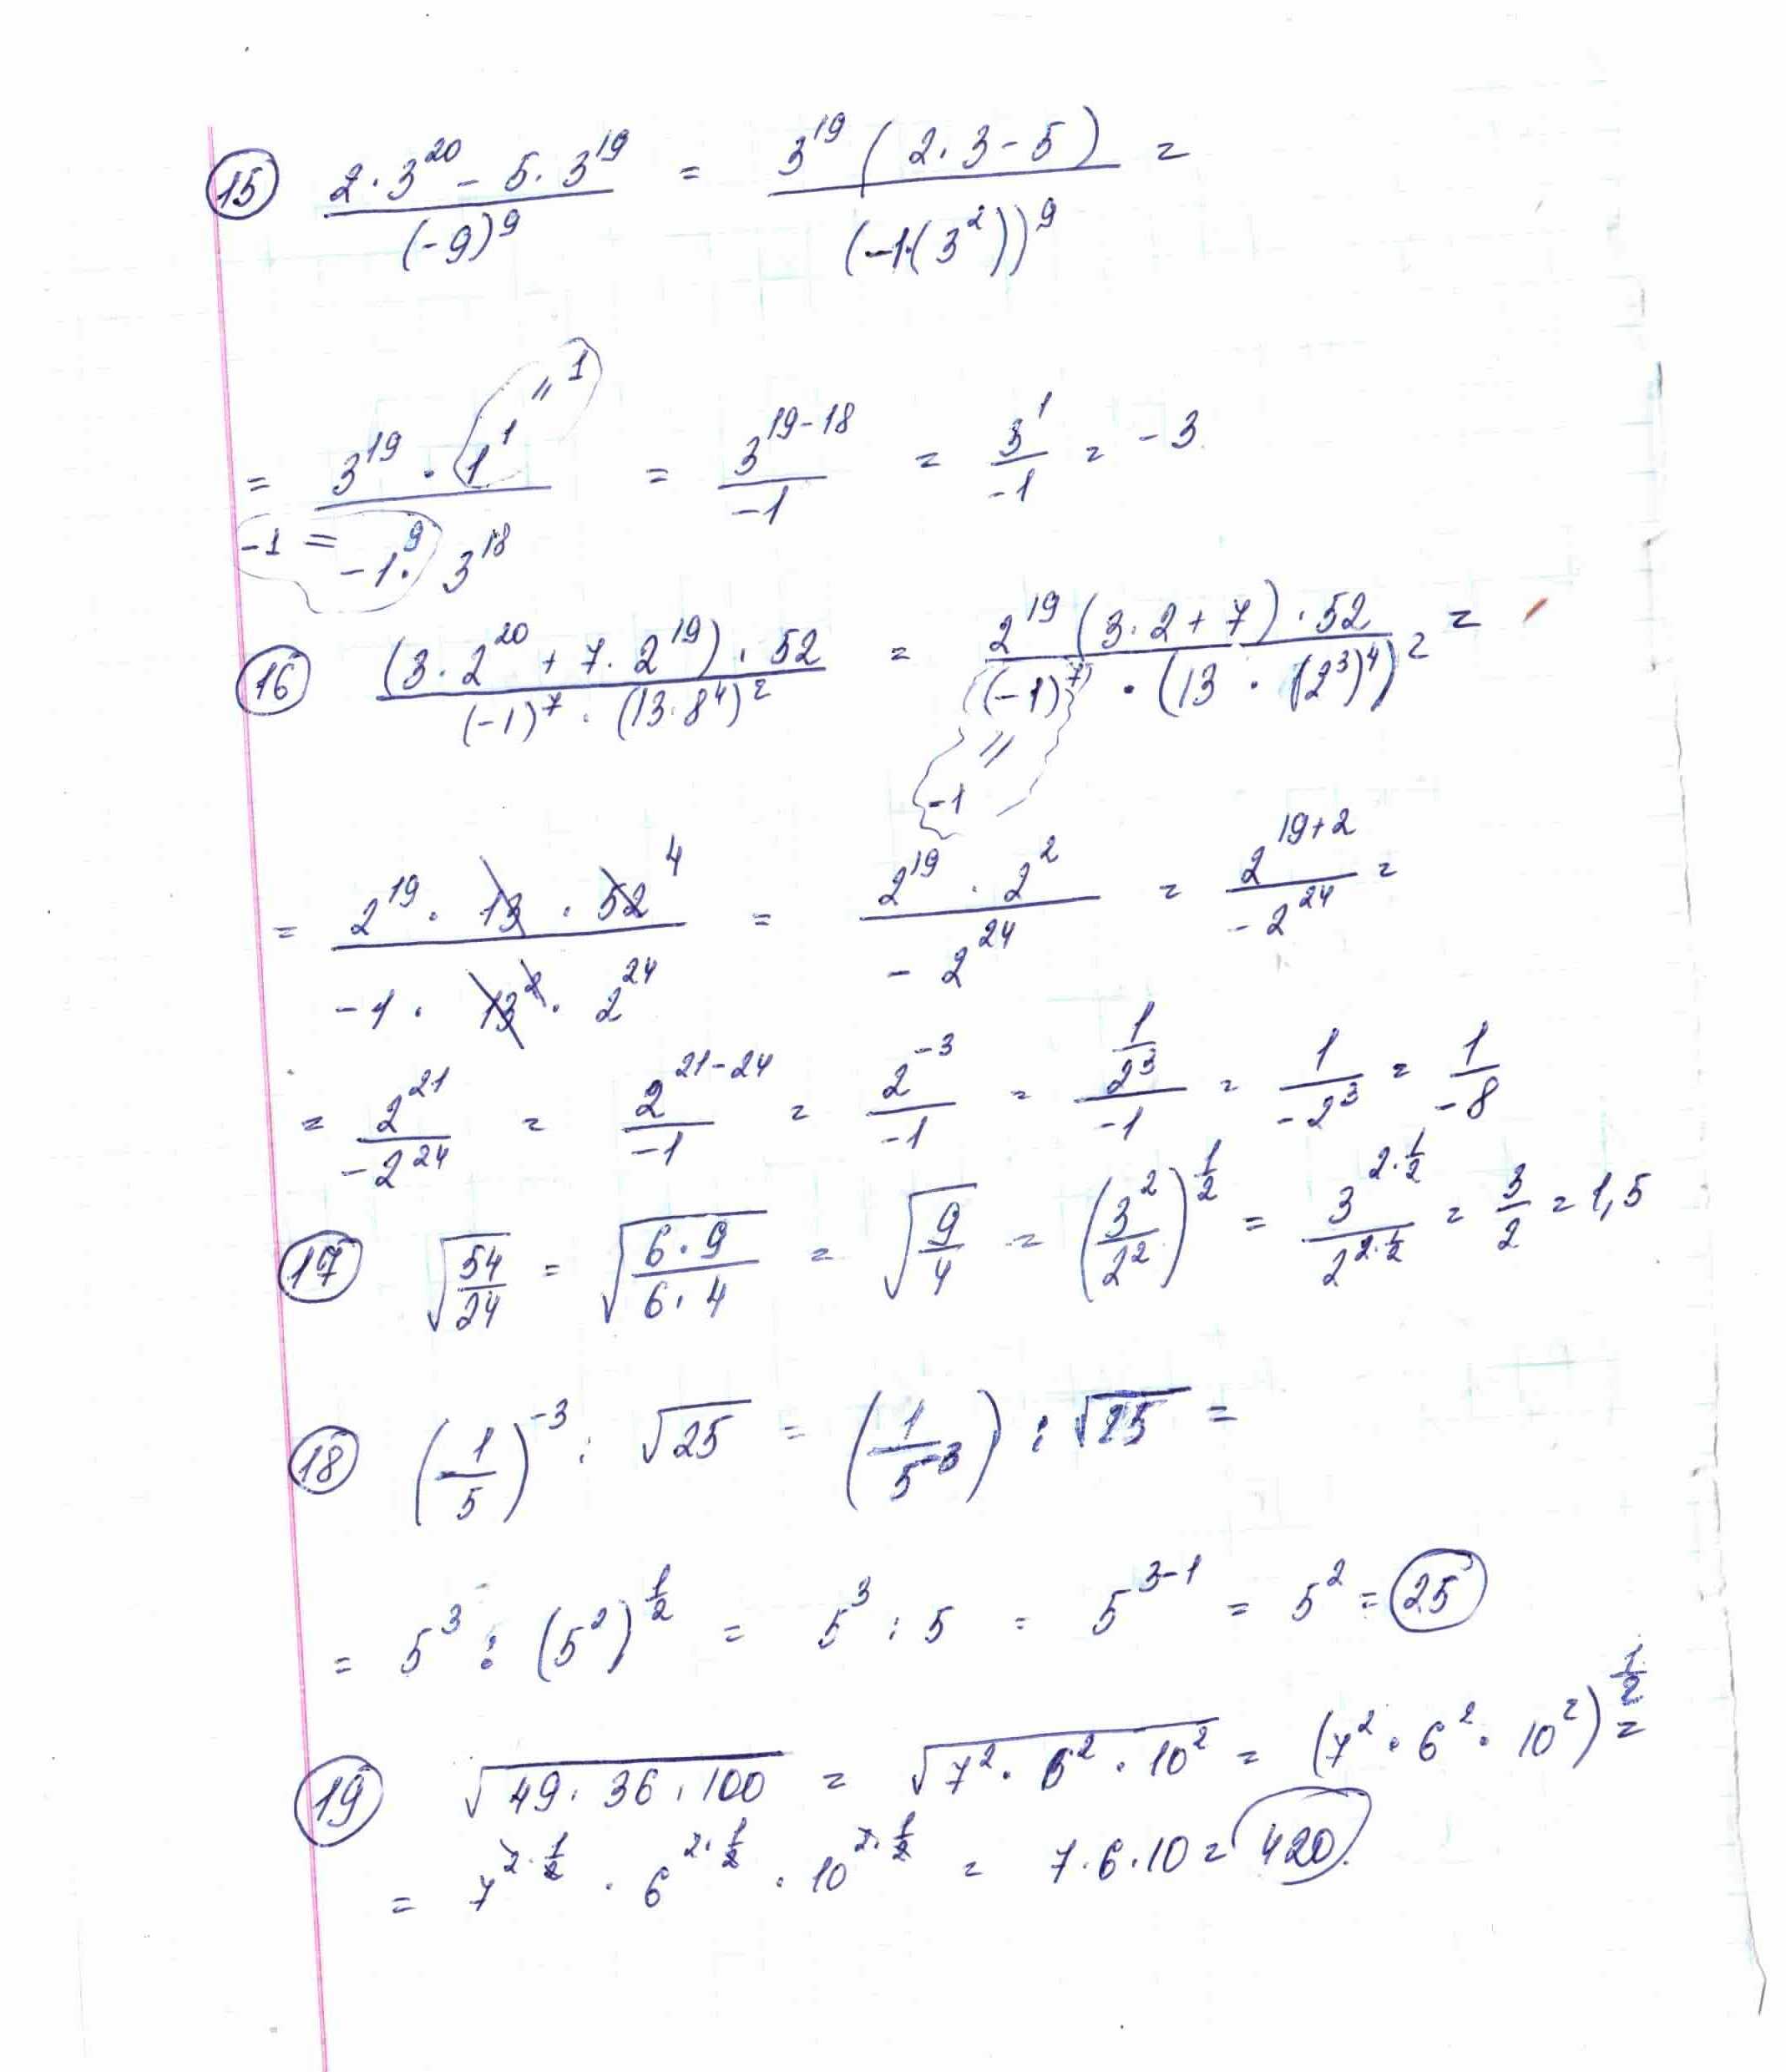 15 (2·3^20 − 5·3^19)/(−9)^9 = 3^19(2·3−5)/(−1·(3^2))^9 =
= (3^19 · 1^1 = 1)/(−1 = −1·^9 3^18) = 3^(19−18)/−1 = 3^1/−1 = −3
16 (3·2^20 + 7·2^19)·52/((−1)^7 · (13·8^4)^2) = 2^19(3·2+7)·52/((−1)^7 · (13·(2^3)^4)^2) =
= −1
= 2^19 · 13 · 52 4/(−1 · 13^2 · 2^24) = 2^19 · 2^2/−2^24 = 2^(19+2)/−2^24 =
= 2^21/−2^24 = 2^(21−24)/−1 = 2^−3/−1 = (1/2^3)/−1 = 1/−2^3 = 1/−8
17 √(54/24) = √(6·9/6·4) = √(9/4) = (3^2/2^2)^(1/2) = 3^(2·1/2)/2^(2·1/2) = 3/2 = 1,5
18 (1/5)^−3 : √25 = (1/5^−3) : √25 =
= 5^3 : (5^2)^(1/2) = 5^3 : 5 = 5^(3−1) = 5^2 = 25
19 √(49·36·100) = √(7^2·6^2·10^2) = (7^2·6^2·10^2)^(1/2) =
= 7^(2·1/2) · 6^(2·1/2) · 10^(2·1/2) = 7·6·10 = 420.